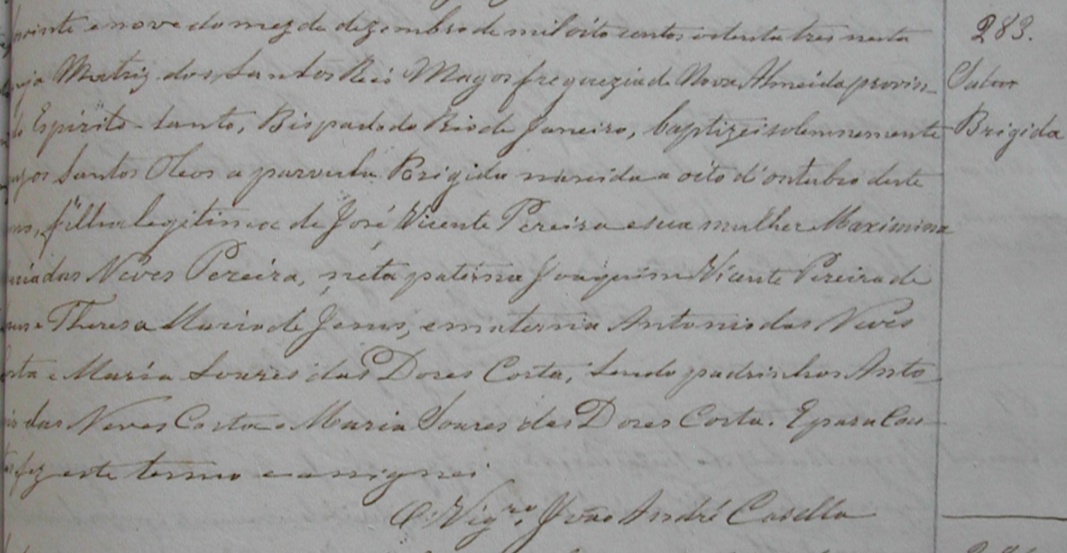 vinte e nove do mez de dezembro de mil oito centos oitenta tres nesta
Matriz dos Santos Reis Magos freguezia de Nova Almeida, provin-
do Espirito-Santo, Bispado do Rio de Janeiro, baptizei solemnemente
Santos Oleos a parvula Brigida nascida a oito d'outubro deste
filha legitima de José Vicente Pereira e sua mulher Maximina
das Neves Pereira, neta paterna Joaquim Vicente Pereira de
Theresa Maria de Jesus, e materna Antonio das Neves
e Maria Soares das Dores Costa, Sendo padrinhos Anto-
das Neves Costa e Maria Soares das Dores Costa. E para cons-
fiz este termo e assignei
O Vigro. João André Casella
283.
Brigida